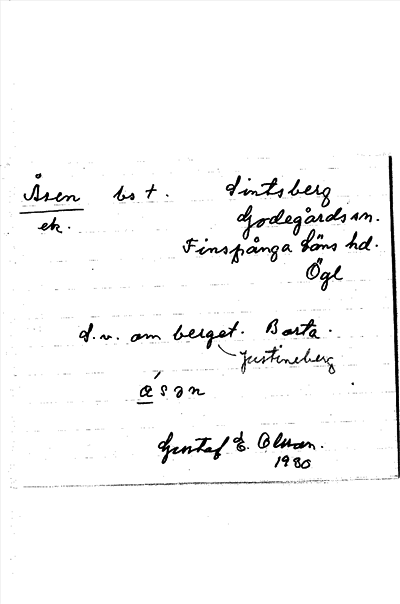 Åsen bst. Sintsberg
ek. Godegårds sn.
Finspånga läns hd.
Ögl
S.v. om berget. Borta.
Justineberg
a´sən
Gustaf E. Olsson.
1930